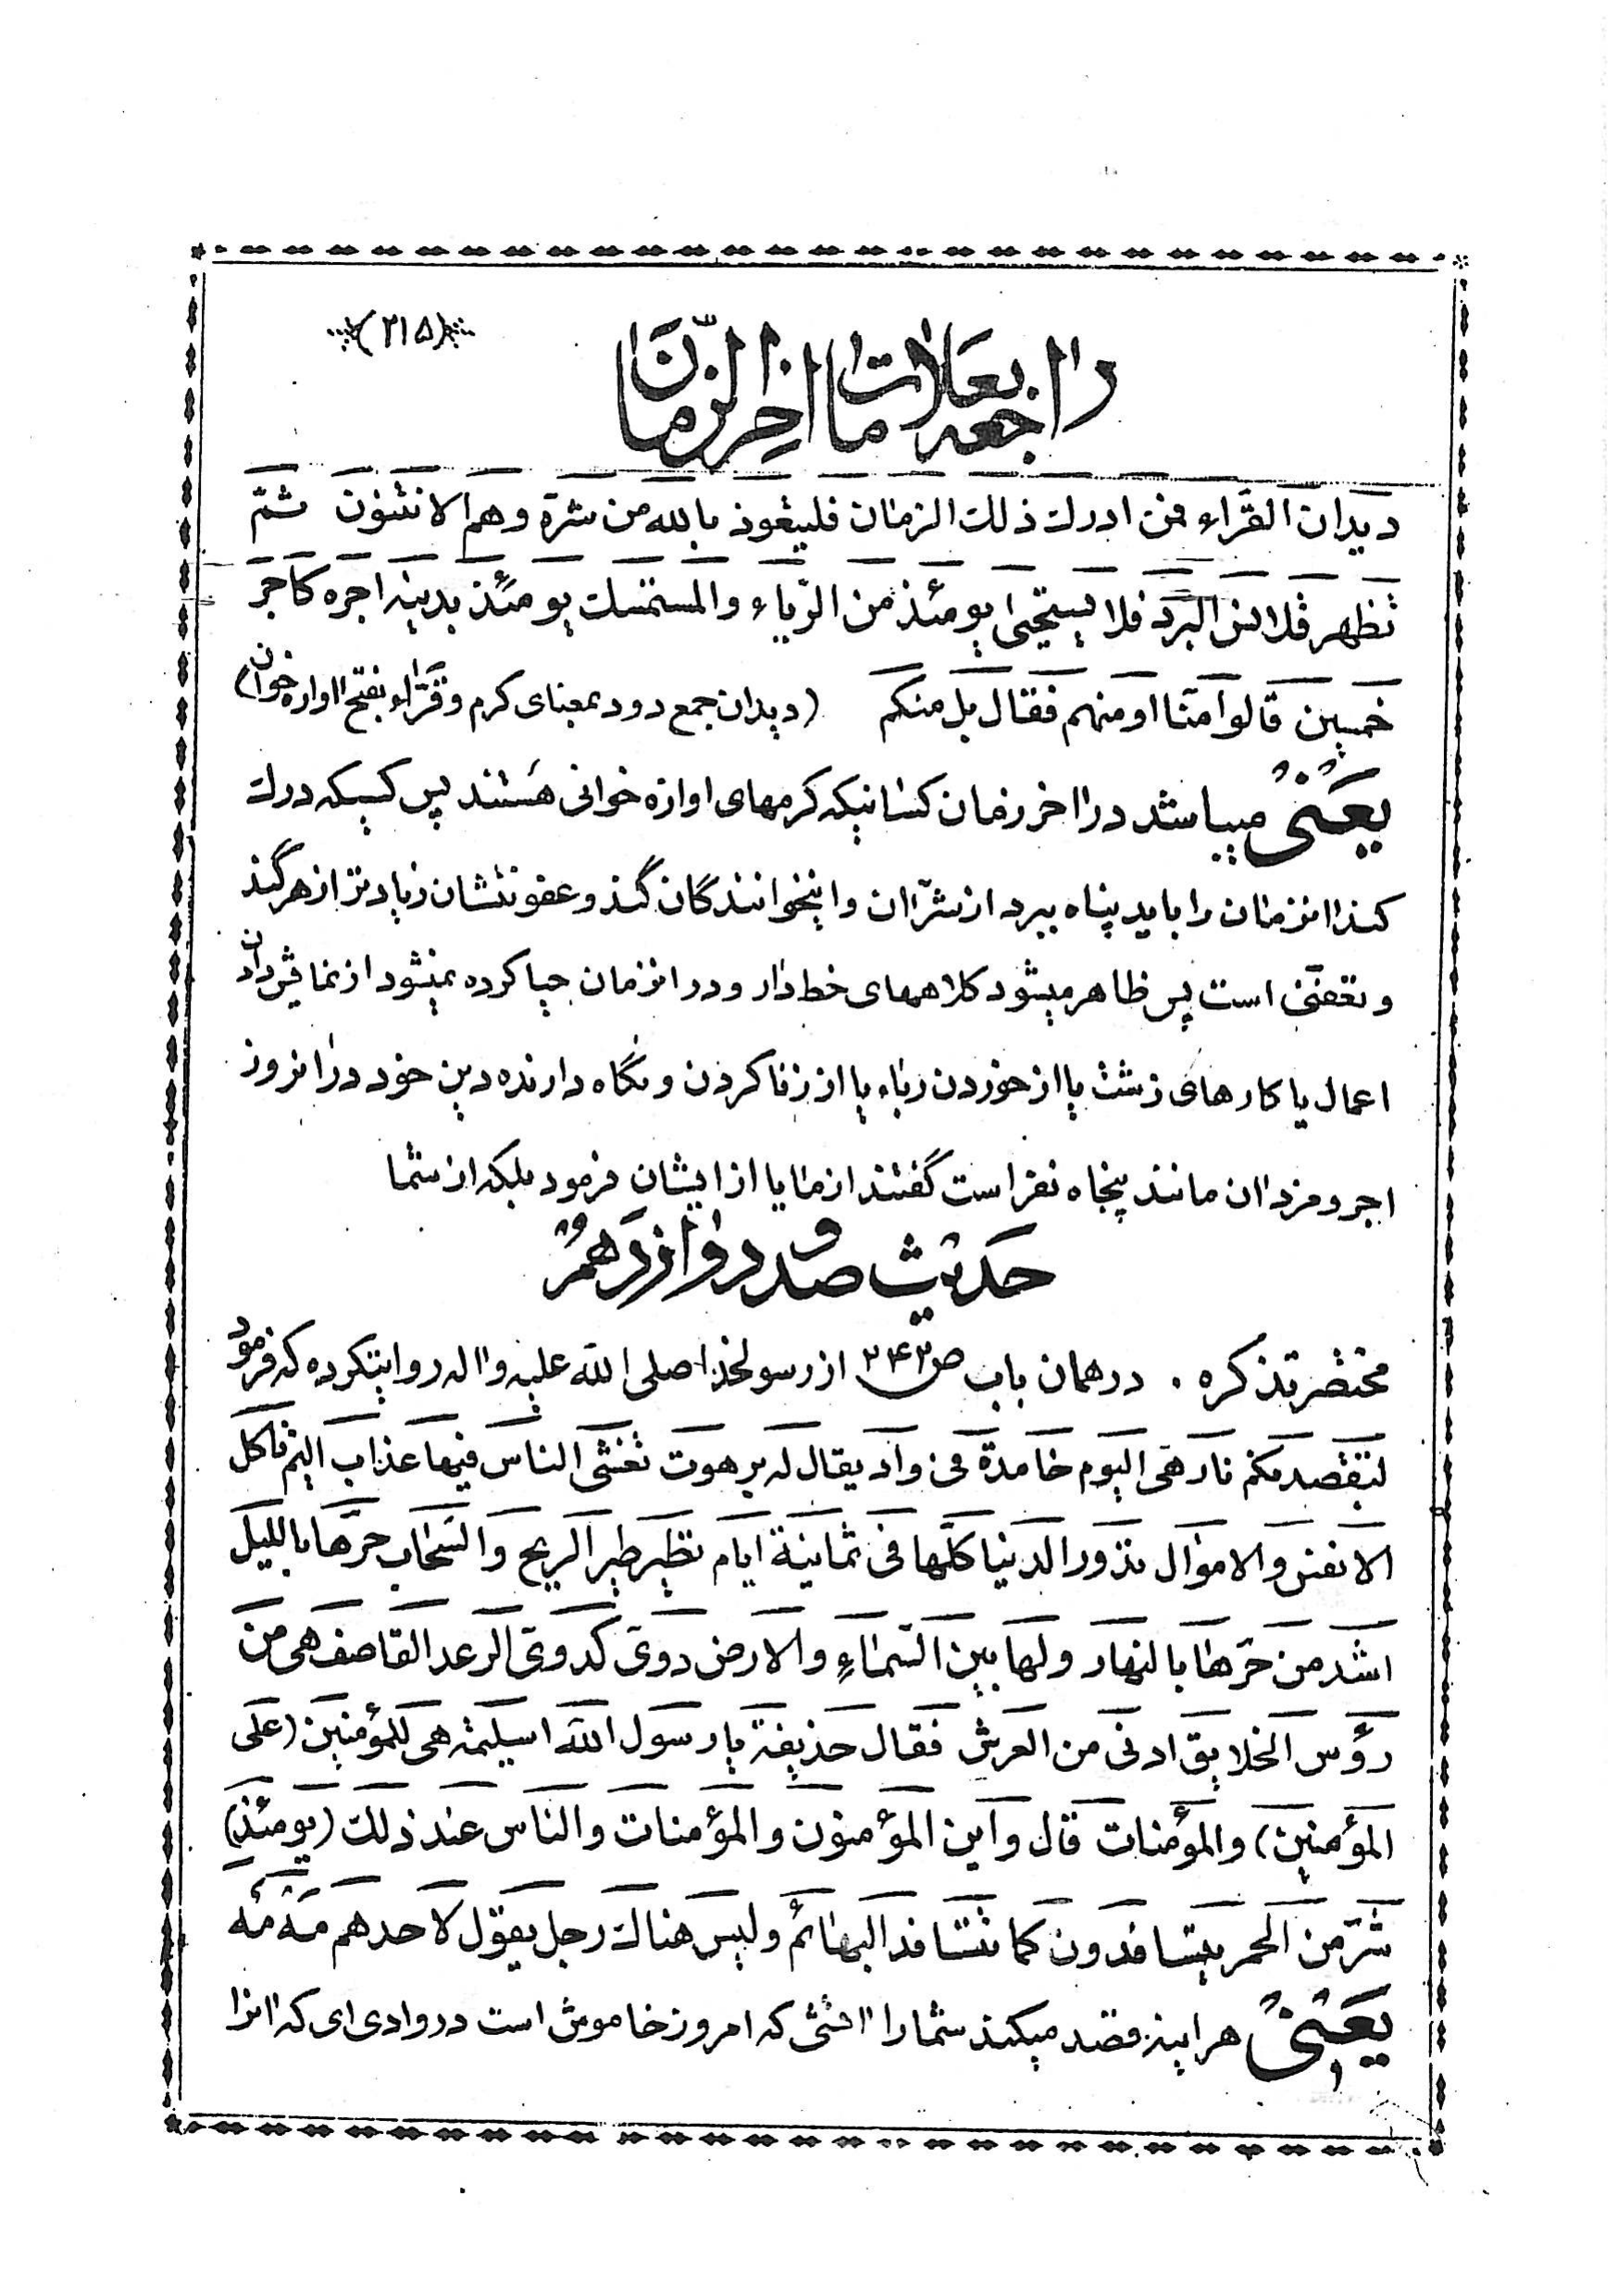 (۲۱۵)
راجعه بعلامات اخر الزمان
دیدان القرّاء فمن ادرك ذلك الزمان فلیتعوذ بالله من شره و هم الانتنون ثمّ
تظهر قلانس البرد فلا یستحیی یومئذ من الریاء و المستمسك یومئذ بدینه اجره کاجر
خمسین قالوا امنّا او منهم فقال بل منکم (دیدان جمع دود بمعنای کرم و قرّاء بفتح اوازه خوان)
یعنی میباشد در اخر زمان کسانیکه کرمهای اوازه خوانی هستند پس کسیکه درك
کند انزمان را باید پناه ببرد از شرّ ان و اینخوانندگان گند و عفونتشان زیادتر از هر گند
و تعفّن است پس ظاهر میشود کلاههای خط دار و در انزمان حیا کرده نمیشود از نمایش دادن
اعمال یا کارهای زشت یا از خوردن رباء یا از زنا کردن و نگاه دارنده دین خود در انروز
اجر و مزد ان مانند پنجاه نفر است گفتند از ما یا از ایشان فرمود بلکه از شما
حدیث صد و دوازدهم
مختصر تذکره . در همان باب ص۲۴۲ از رسولخدا صلی الله علیه و اله روایتکرده که فرمود
لتقصدنکم نار هی الیوم خامدة فی واد یقال له برهوت تغشی الناس فیها عذاب الیم تاکل
الانفس و الاموال تدور الدنیا کلّها فی ثمانیة ایام تطیر طیر الریح و السحاب حرّها باللیل
اشد من حرّها بالنهار و لها بین السّماء و الارض دویّ کدویّ الرعد القاصف هی من
رؤس الخلایق ادنی من العرش فقال حذیفة یا رسول الله اسلیمة هی للمؤمنین (علی
المؤمنین) و المؤمنات قال و این المؤمنون و المؤمنات و الناس عند ذلك (یومئذ)
شرّ من الحمر یتسافدون کما تتسافد البهائم و لیس هناك رجل یقول لاحدهم مه مه
یعنی هراینه قصد میکند شما را اتشی که امروز خاموش است در وادی ای که انرا